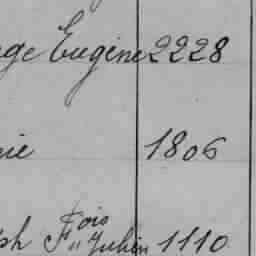 ge Eugène 2228
ie 1806
ph Fois Juhin 1110